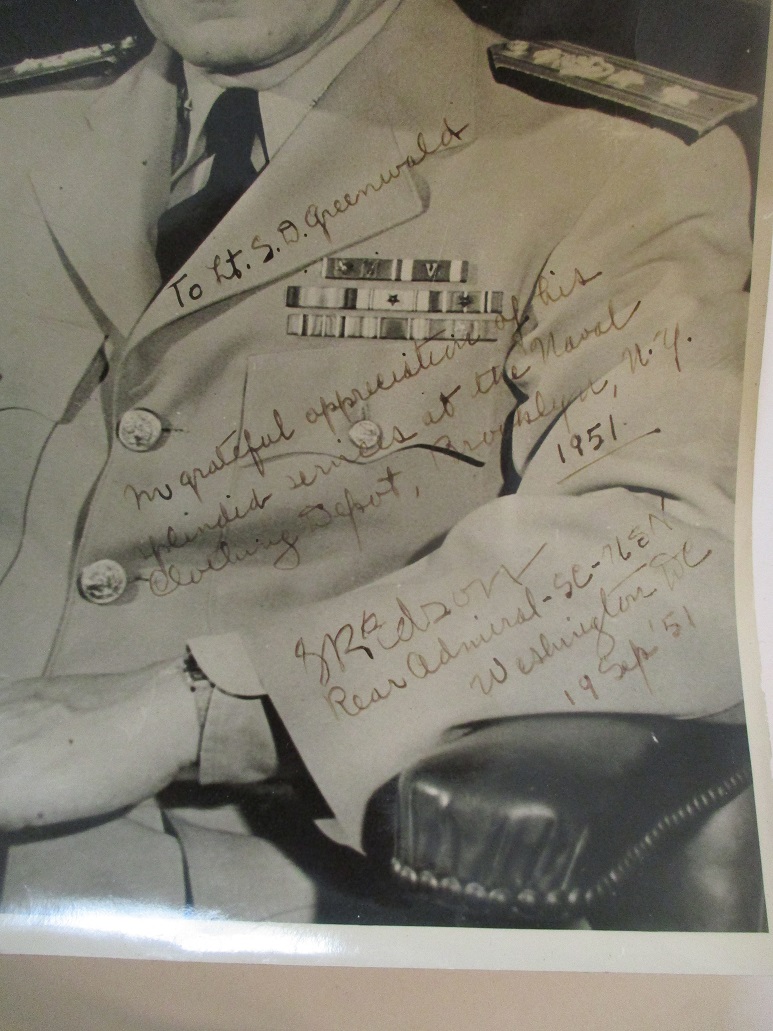 To Lt. S. D. Greenwald
In grateful appreciation of his
splendid services at the Naval
Clothing Depot, Brooklyn, N.Y.
1951.
Edson
Rear Admiral - SC - USN
Washington DC
19 Sep '51